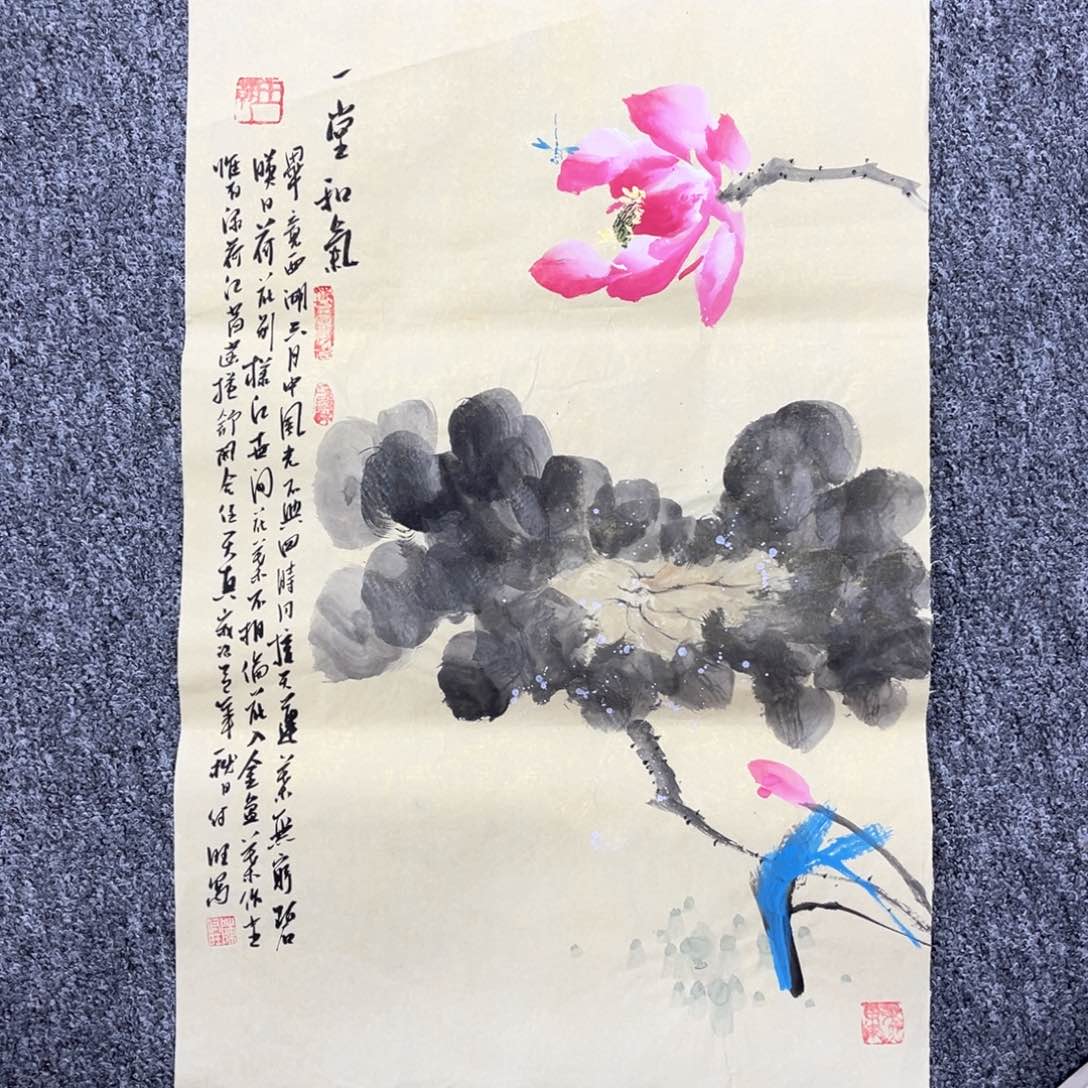 一堂和氣
畢竟西湖六月中風光不與四時同接天蓮葉無窮碧
映日荷花別樣紅世間花葉不相倫花入金盆葉作尘
惟有綠荷紅菡萏捲舒開合任天真 秋日付旺寫